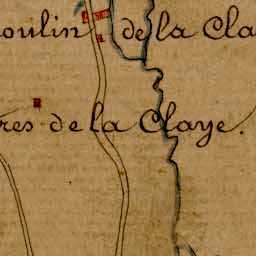 oulin de la Cla
res de la Claye.